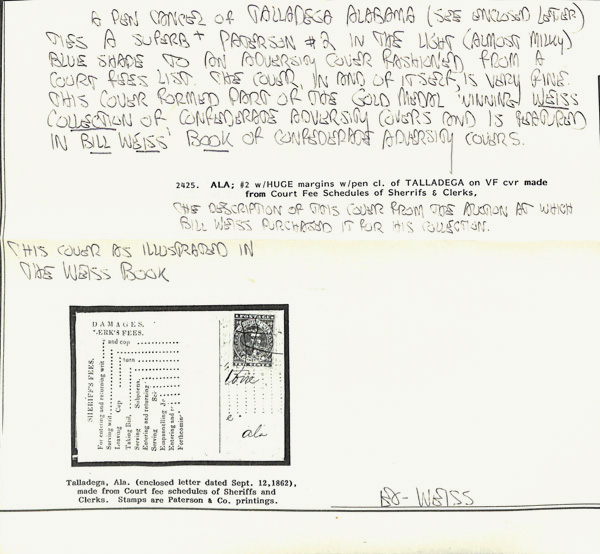 A PEN CANCEL OF TALLADEGA ALABAMA (SEE ENCLOSED LETTER)
TIES A SUPERB+ PATERSON #2 IN THE LIGHT (ALMOST MILKY)
BLUE SHADE TO AN ADVERSITY COVER FASHIONED FROM A
COURT FEES LIST. THE COVER, IN AND OF ITSELF, IS VERY FINE.
THIS COVER FORMED PART OF THE GOLD MEDAL WINNING WEISS
COLLECTION OF CONFEDERATE ADVERSITY COVERS AND IS FEATURED
IN BILL WEISS' BOOK OF CONFEDERATE ADVERSITY COVERS.
2425. ALA; #2 w/HUGE margins w/pen cl. of TALLADEGA on VF cvr made
from Court Fee Schedules of Sherrifs & Clerks,
THE DESCRIPTION OF THIS COVER FROM THE AUCTION AT WHICH
BILL WEISS PURCHASED IT FOR HIS COLLECTION.
THIS COVER AS ILLUSTRATED IN
THE WEISS BOOK
DAMAGES.
SHERIFF'S FEES.
For entering and returning writ
Serving writ,
Leaving Cop
Taking Bail,
Serving Subpoena,
Entering and returning
Serving
Empannelling
Entering and
Forthcomin
and cop
turn
POSTAGE
TEN CENTS
ala
Talladega, Ala. (enclosed letter dated Sept. 12,1862),
made from Court fee schedules of Sheriffs and
Clerks. Stamps are Paterson & Co. printings.
EX-WEISS